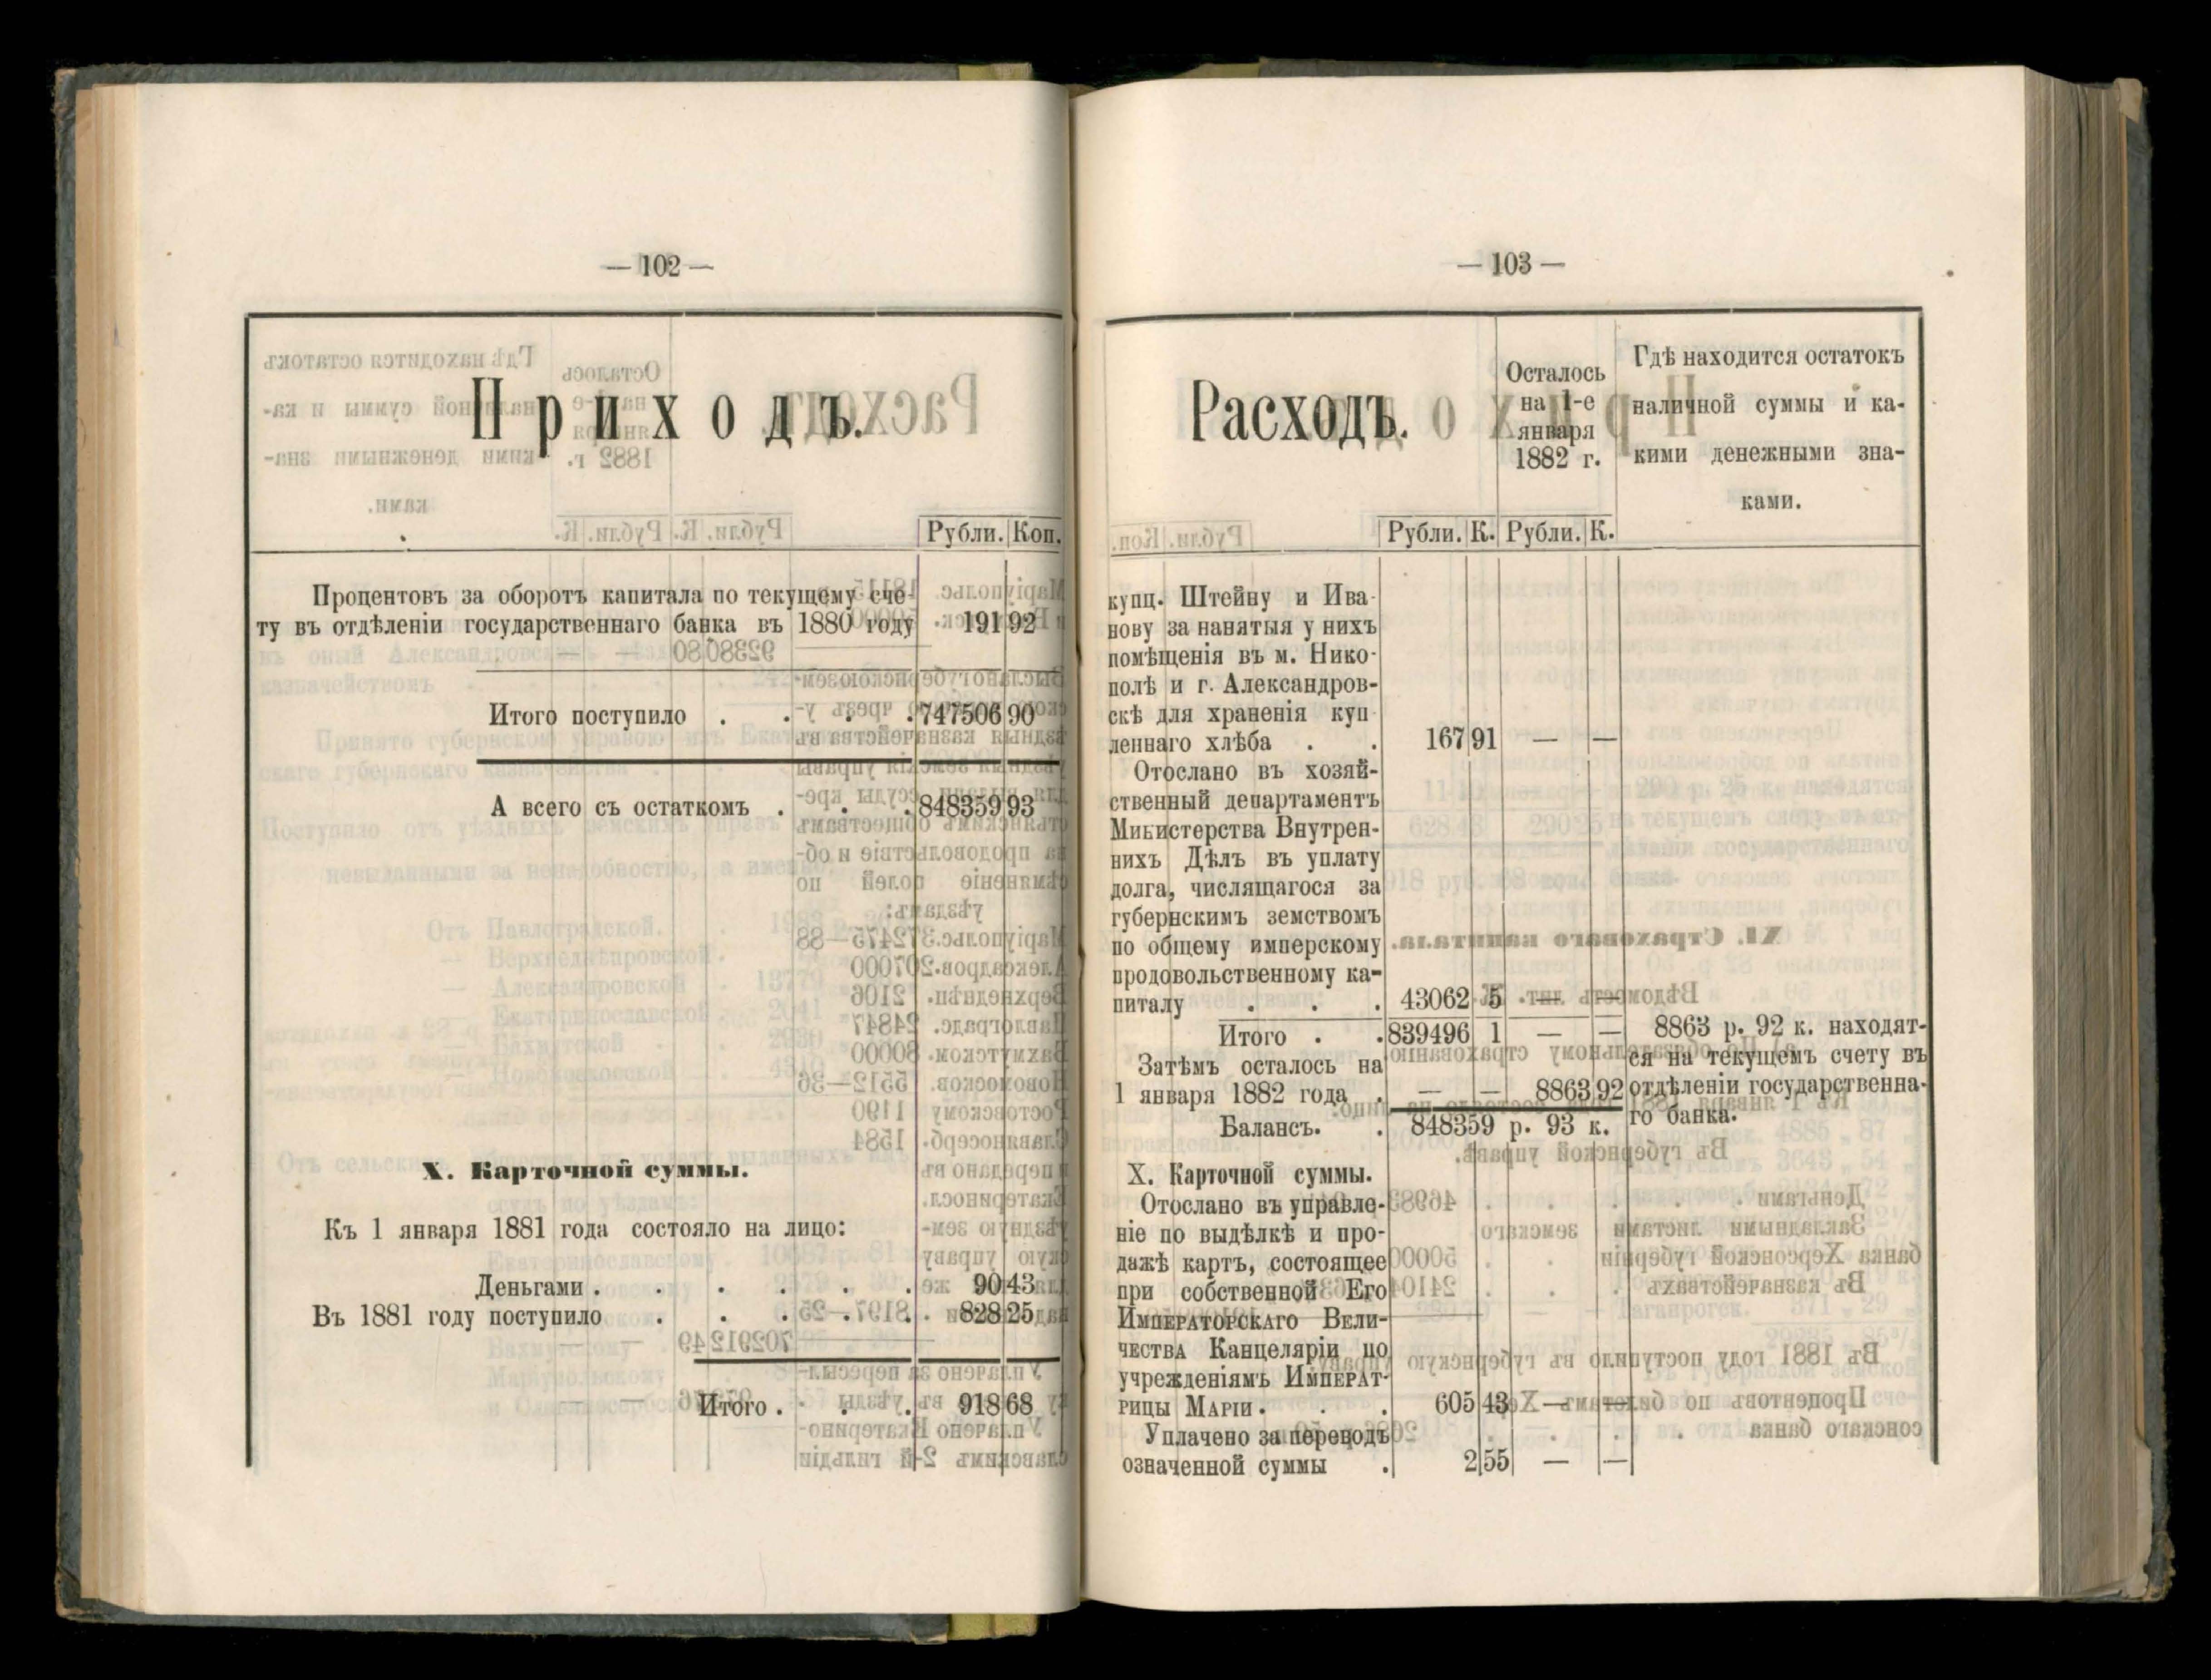 — 102 —
Приходъ.
Рубли. Коп.
Процентовъ за оборотъ капитала по текущему сче-
ту въ отдѣленіи государственнаго банка въ 1880 году 191 92
Итого поступило . . . . 747506 90
А всего съ остаткомъ . . . 848359 93
X. Карточной суммы.
Къ 1 января 1881 года состояло на лицо:
Деньгами . . . . . . 90 43
Въ 1881 году поступило . . . . . 828 25
Итого . . . 918 68
— 103 —
Расходъ.
Осталось
на 1-е
января
1882 г.
Гдѣ находится остатокъ
наличной суммы и ка-
кими денежными зна-
ками.
Рубли. К. Рубли. К.
купц. Штейну и Ива-
нову за нанятыя у нихъ
помѣщенія въ м. Нико-
полѣ и г. Александров-
скѣ для храненія куп
леннаго хлѣба . . 167 91 — —
Отослано въ хозяй-
ственный департаментъ
Министерства Внутрен-
нихъ Дѣлъ въ уплату
долга, числящагося за
губернскимъ земствомъ
по общему имперскому
продовольственному ка-
питалу . . . 43062 5 — —
Итого . . 839496 1 — —
Затѣмъ осталось на
1 января 1882 года . — — 8863 92
Балансъ. . 848359 р. 93 к.
8863 р. 92 к. находят-
ся на текущемъ счету въ
отдѣленіи государственна-
го банка.
X. Карточной суммы.
Отослано въ управле-
ніе по выдѣлкѣ и про-
дажѣ картъ, состоящее
при собственной Его
Императорскаго Вели-
чества Канцеляріи по
учрежденіямъ Императ-
рицы Маріи . . . 605 43 — —
Уплачено за переводъ
означенной суммы . 2 55 — —